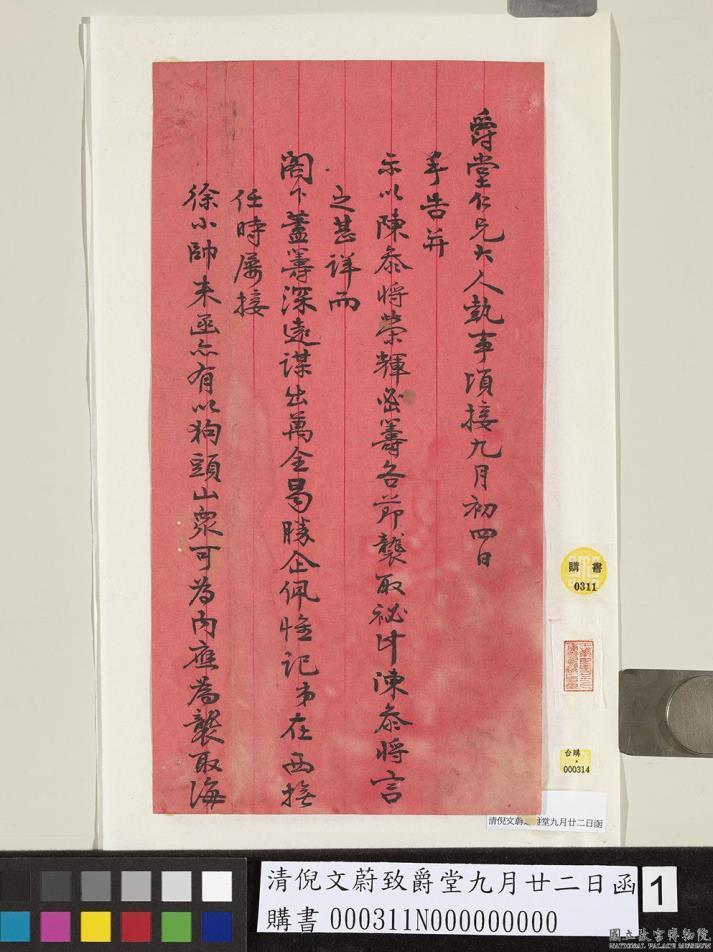 爵堂仁兄大人執事頃接九月初四日
手告并
示以陳叅將榮輝密籌各節襲取祕計陳叅將言
之甚詳而
閣下蓋籌深遠謀出萬全曷勝企佩惟記弟在西撫
任時屡接
徐小帥来函亦有以狗頭山衆可為内應為襲取海
購書
0311
台購
000314
清倪文蔚致爵堂九月廿二日函
清倪文蔚致爵堂九月廿二日函
購書000311N000000000
1
國立故宮博物院
NATIONAL PALACE MUSEUM